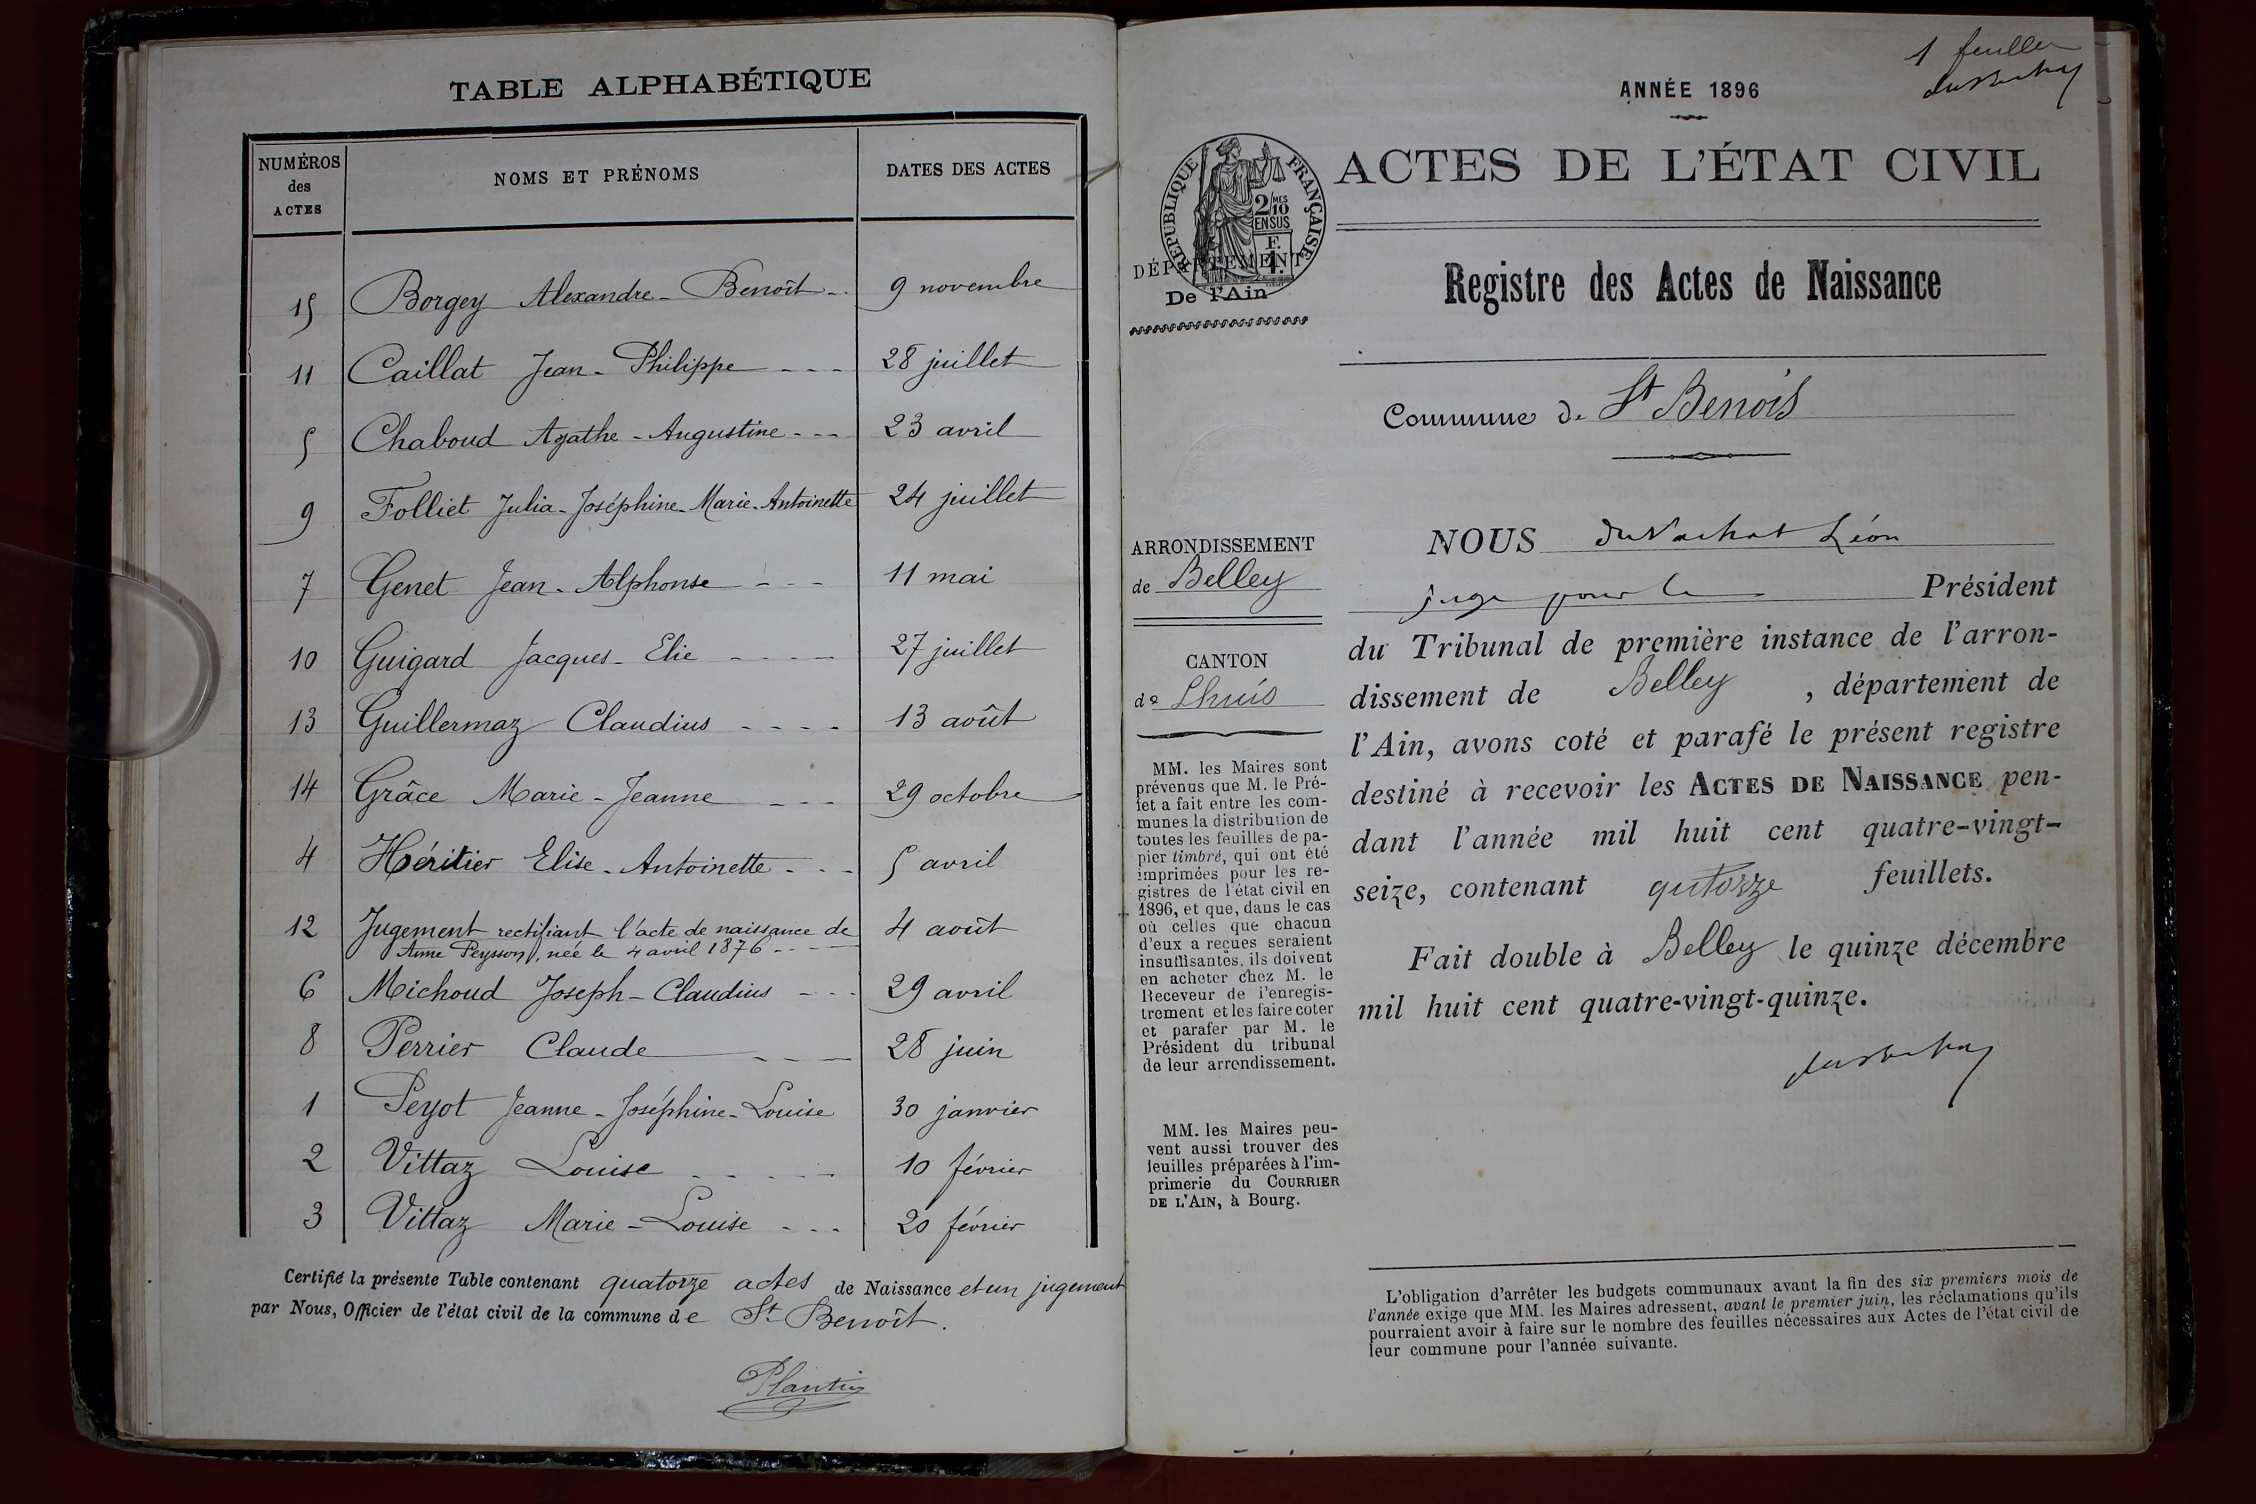 TABLE ALPHABÉTIQUE
NUMÉROS des ACTES
NOMS ET PRÉNOMS
DATES DES ACTES
15 Borgey Alexandre - Benoît - 9 novembre
11 Caillat Jean - Philippe - - - 28 juillet
5 Chaboud Agathe - Augustine - - - 23 avril
9 Folliet Julia - Joséphine - Marie - Antoinette 24 juillet
7 Genet Jean - Alphonse - - - 11 mai
10 Guigard Jacques - Elie - - - - 27 juillet
13 Guillermaz Claudius - - - - 13 août
14 Grâce Marie - Jeanne - - - 29 octobre
4 Héritier Elise - Antoinette - - - 5 avril
12 Jugement rectifiant l'acte de naissance de 4 août
Anne Peysson, née le 4 avril 1876 - - -
6 Michoud Joseph - Claudius - - - 29 avril
8 Perrier Claude - - - 28 juin
1 Peyot Jeanne - Joséphine - Louise 30 janvier
2 Vittaz Louise - - - - - 10 février
3 Vittaz Marie - Louise - - - 20 février
Certifié la présente Table contenant quatorze actes de Naissance et un jugement
par Nous, Officier de l'état civil de la commune de St Benoît.
Plantin
1 feuillet
ANNÉE 1896
ACTES DE L'ÉTAT CIVIL
RÉPUBLIQUE FRANÇAISE
2/10 MES
EN SUS
F.
1.
DÉPARTEMENT
De l'Ain
Registre des Actes de Naissance
Commune de St Benois
ARRONDISSEMENT
de Belley
CANTON
de Lhuis
MM. les Maires sont
prévenus que M. le Pré-
fet a fait entre les com-
munes la distribution de
toutes les feuilles de pa-
pier timbré, qui ont été
imprimées pour les re-
gistres de l'état civil en
1896, et que, dans le cas
où celles que chacun
d'eux a reçues seraient
insuffisantes, ils doivent
en acheter chez M. le
Receveur de l'enregis-
trement et les faire coter
et parafer par M. le
Président du tribunal
de leur arrondissement.
MM. les Maires peu-
vent aussi trouver des
feuilles préparées à l'im-
primerie du COURRIER
DE L'AIN, à Bourg.
NOUS Duvachat Léon
juge pour le Président
du Tribunal de première instance de l'arron-
dissement de Belley, département de
l'Ain, avons coté et parafé le présent registre
destiné à recevoir les ACTES DE NAISSANCE pen-
dant l'année mil huit cent quatre-vingt-
seize, contenant qutorze feuillets.
Fait double à Belley le quinze décembre
mil huit cent quatre-vingt-quinze.
L'obligation d'arrêter les budgets communaux avant la fin des six premiers mois de
l'année exige que MM. les Maires adressent, avant le premier juin, les réclamations qu'ils
pourraient avoir à faire sur le nombre des feuilles nécessaires aux Actes de l'état civil de
leur commune pour l'année suivante.